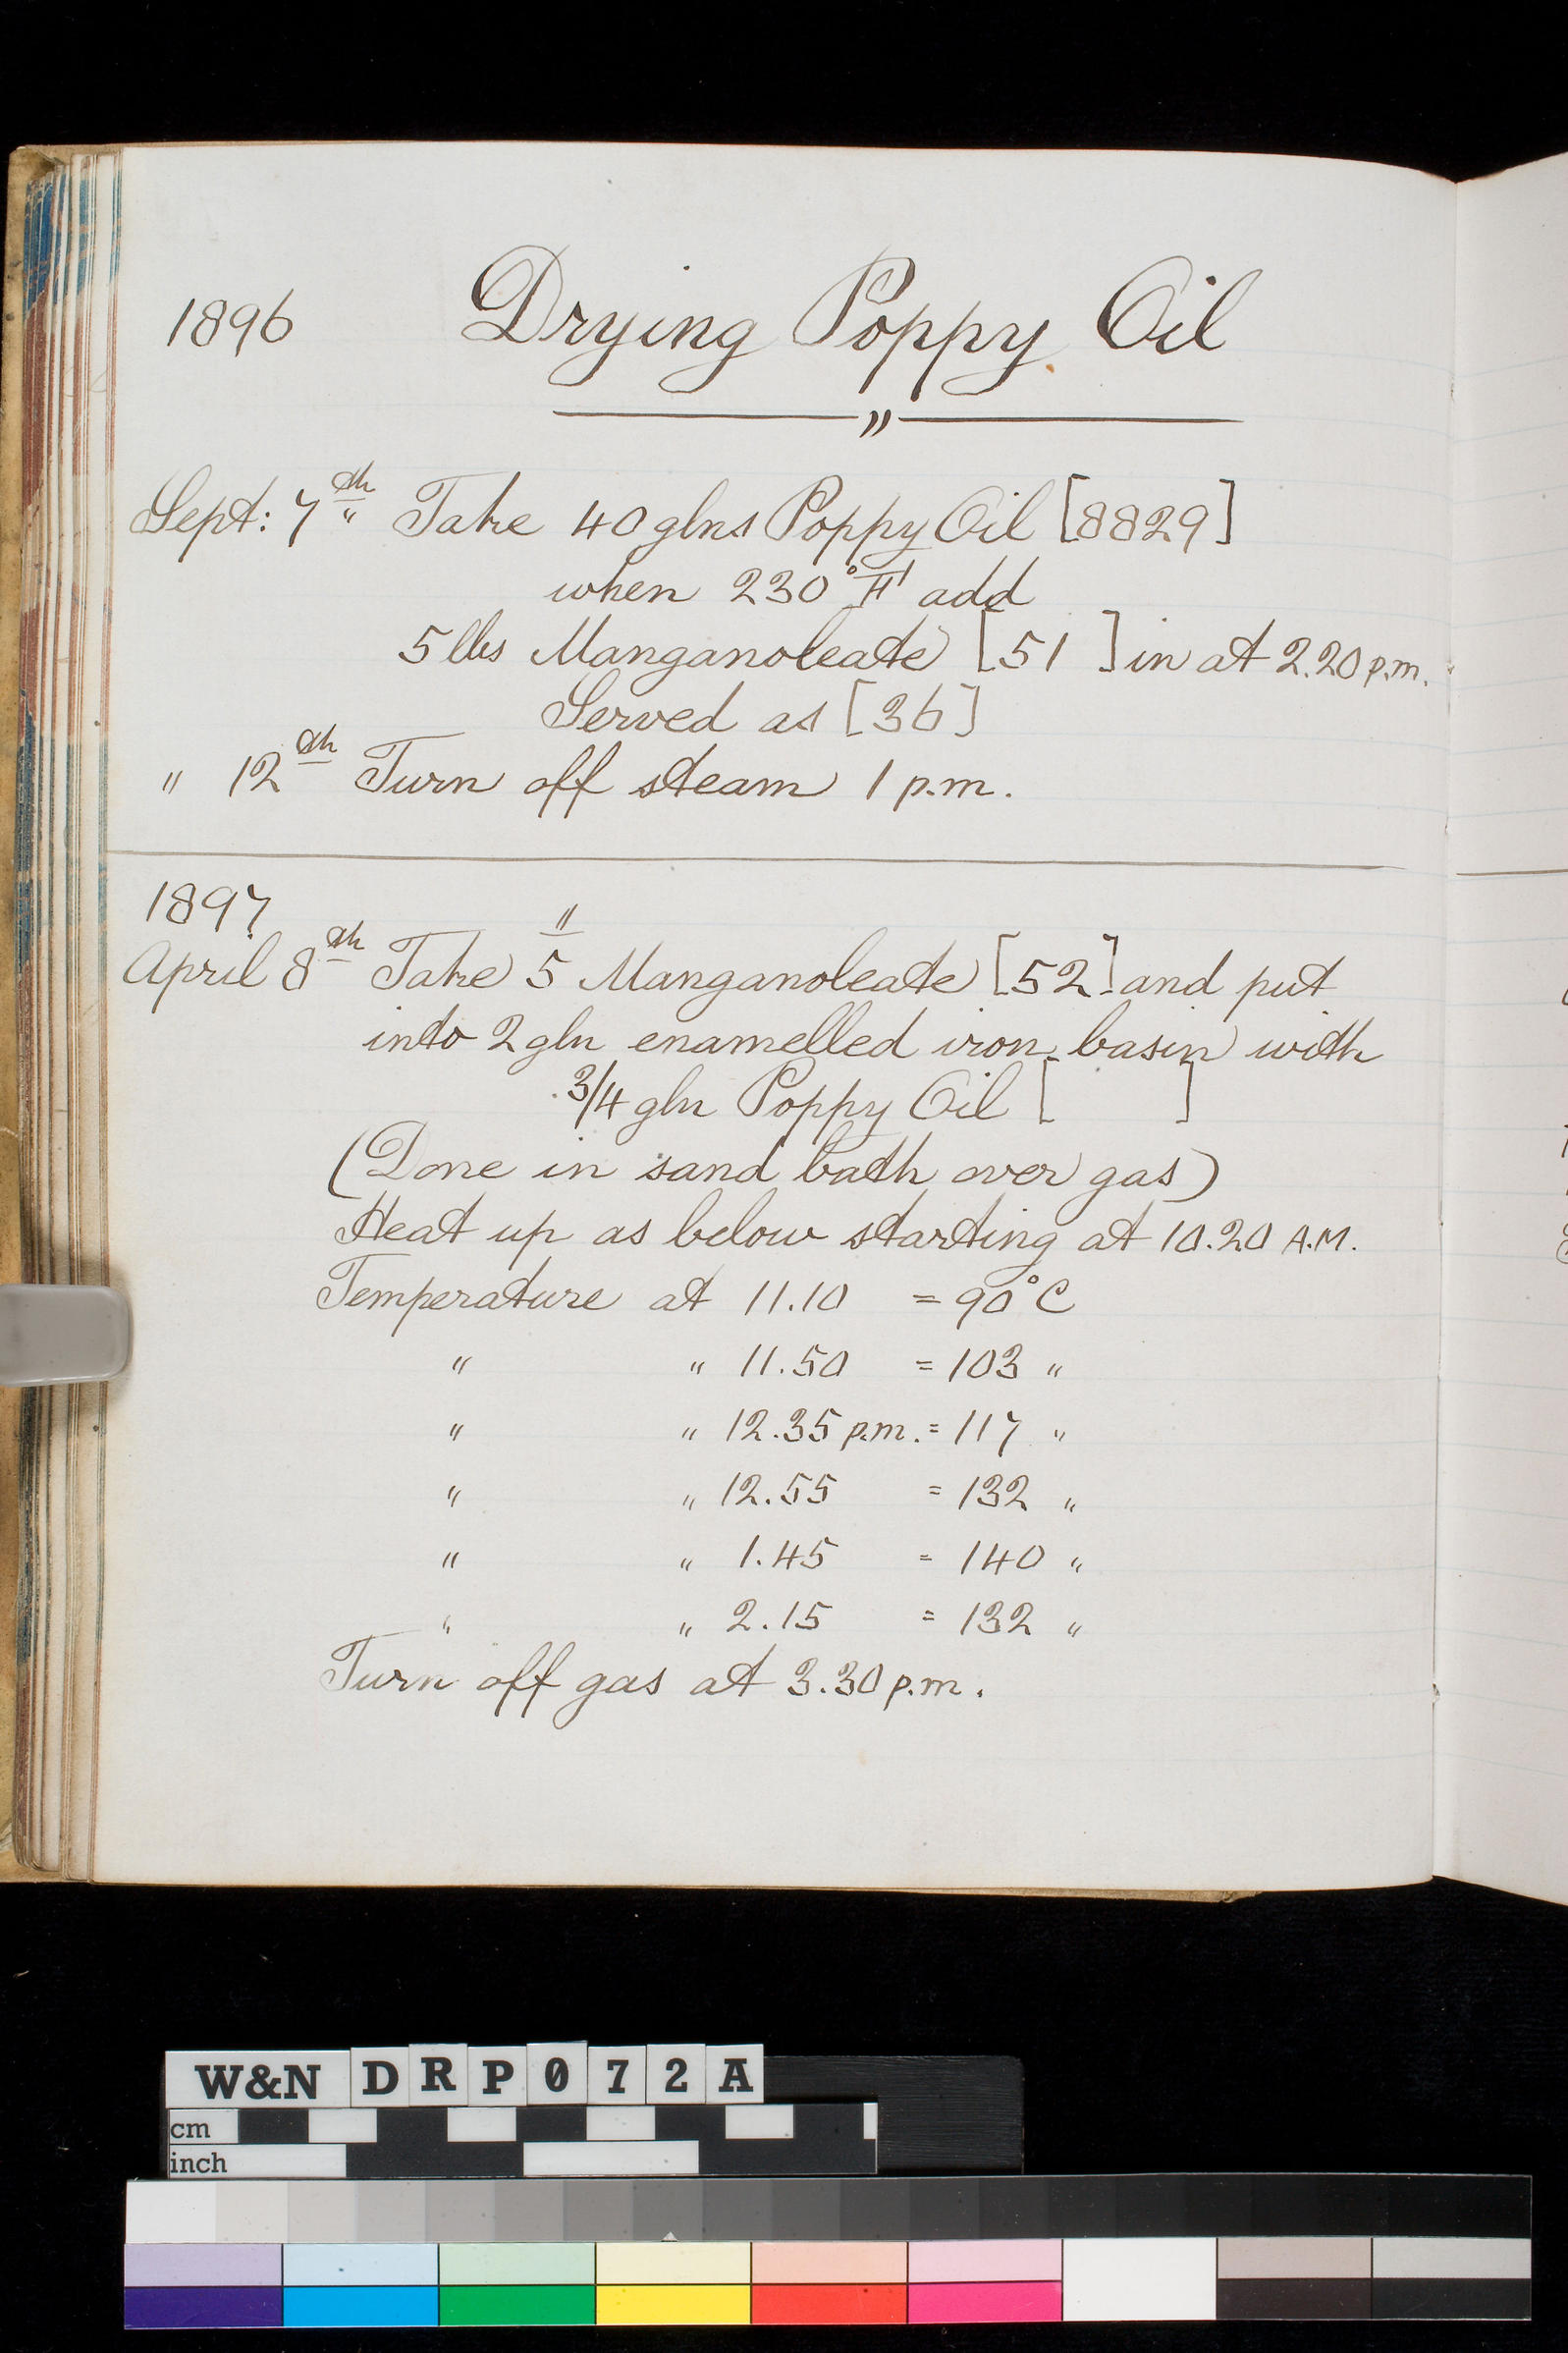 1896 Drying Poppy Oil
Sept: 7th " Take 40 glns Poppy Oil [8829]
when 230°F add
5 lbs Manganoleate [51 ] in at 2.20 p.m.
Served as [36]
" 12th Turn off steam 1 p.m.
1897
April 8th Take 5" Manganoleate [52] and put
into 2 gln enamelled iron basin with
3/4 gln Poppy Oil [ ]
(Done in sand bath over gas)
Heat up as below starting at 10.20 A.M.
Temperature at 11.10 = 90°C
" " 11.50 = 103 "
" " 12.35 p.m. = 117 "
" " 12.55 = 132 "
" " 1.45 = 140 "
" " 2.15 = 132 "
Turn off gas at 3.30 p.m.
W&N DRP072A
cm
inch